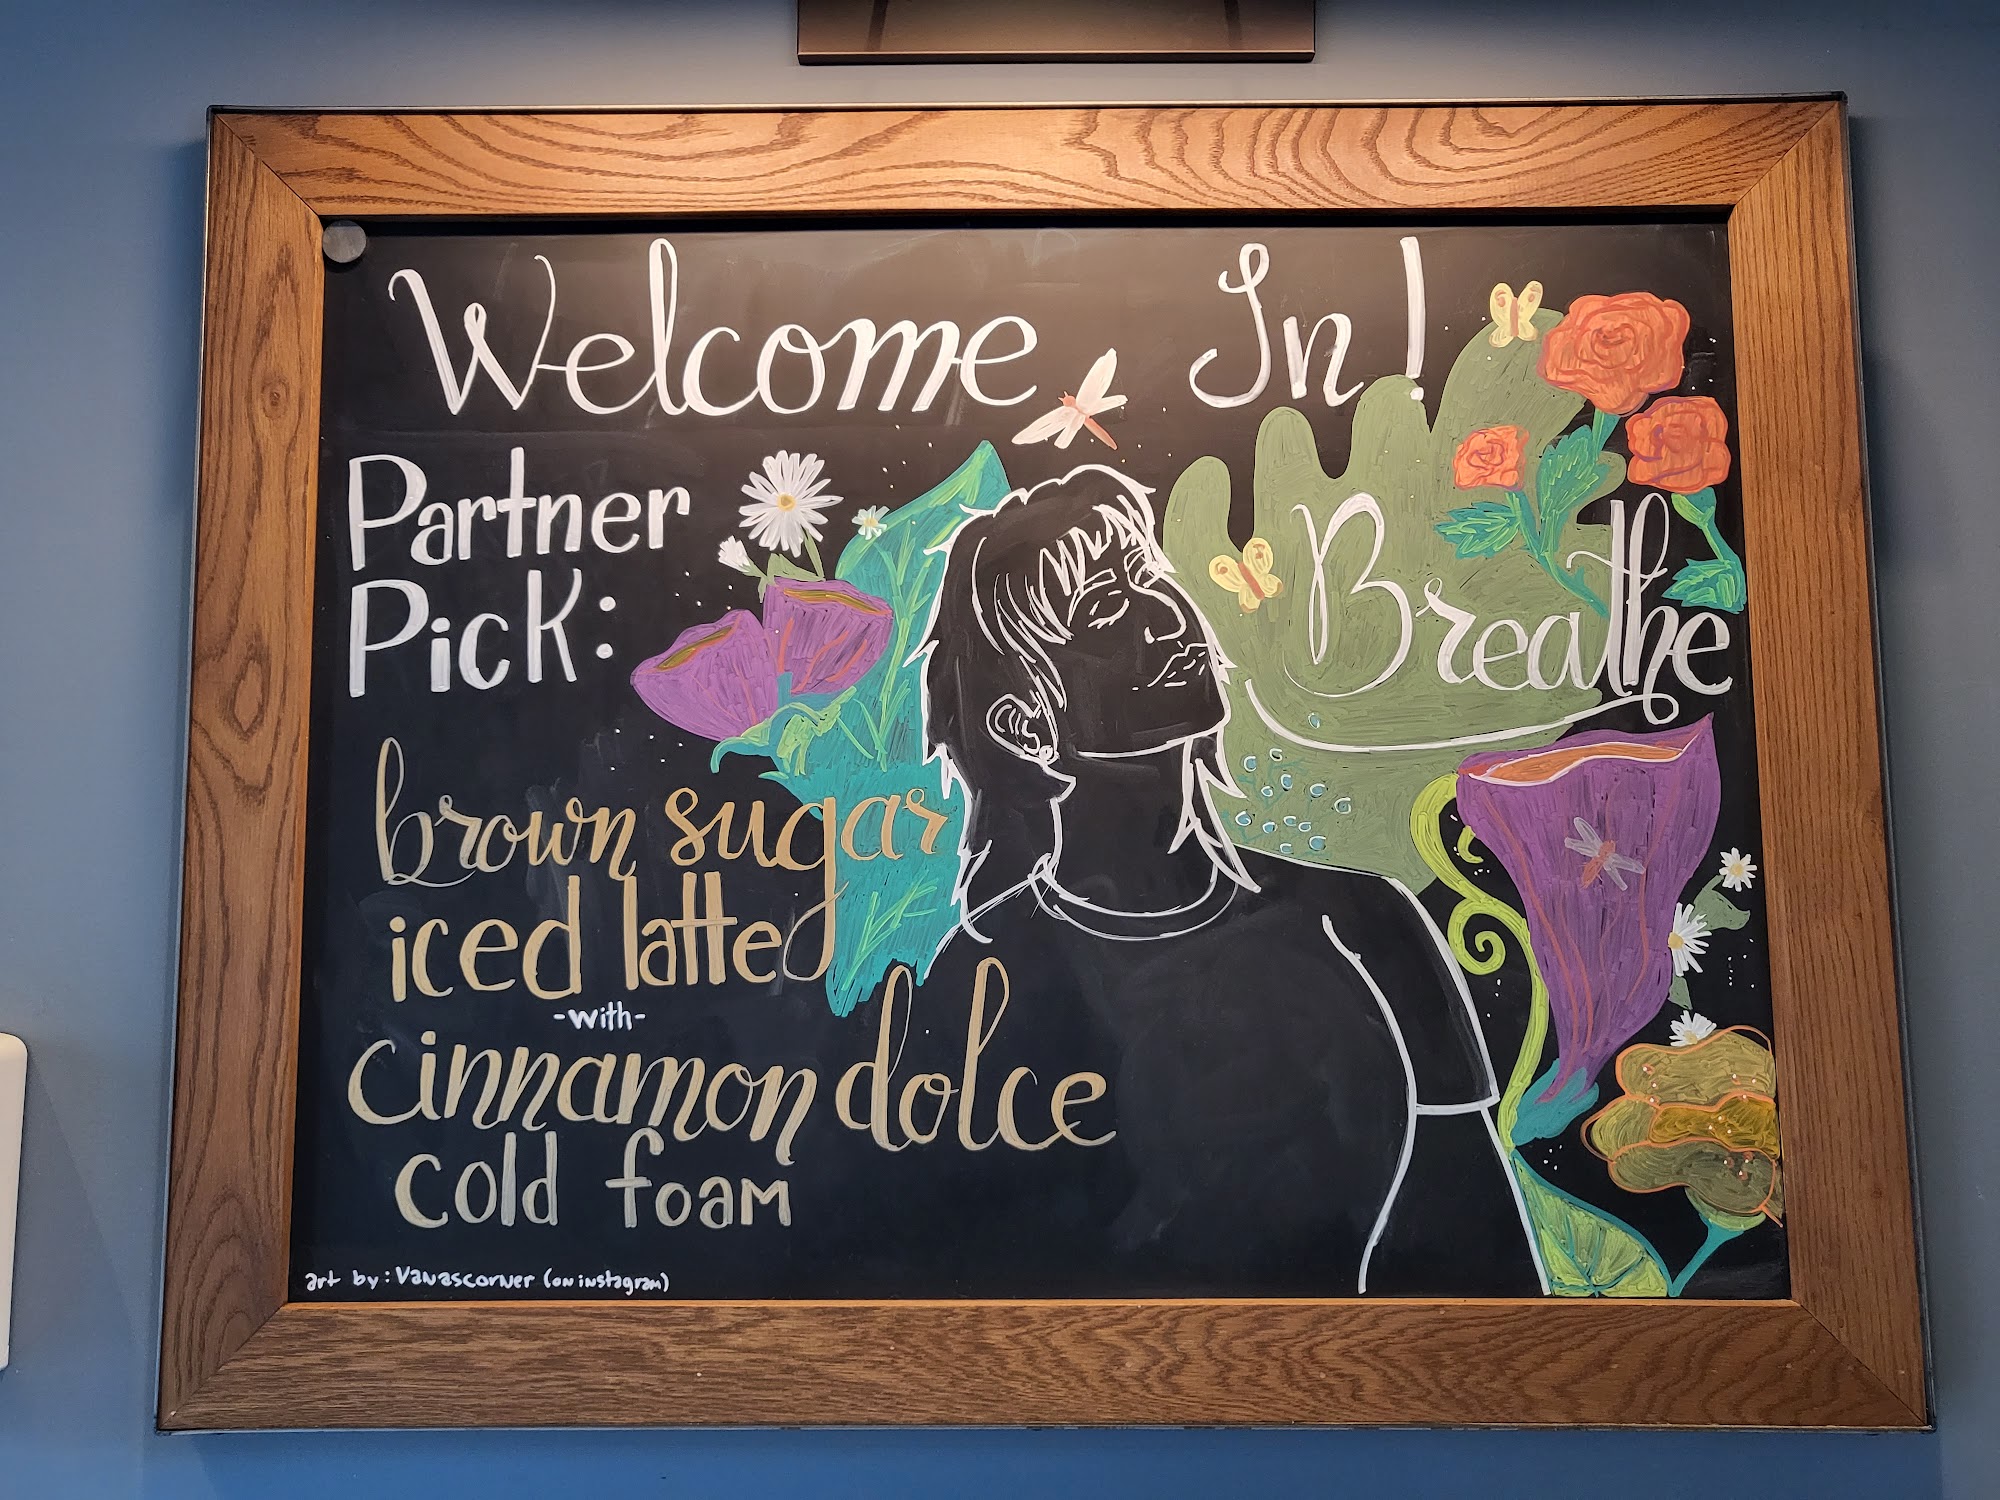 Welcome In!
Partner
Pick:
Breathe
brown sugar
iced latte
-with-
cinnamon dolce
cold foam
art by: Vanascorner (on instagram)